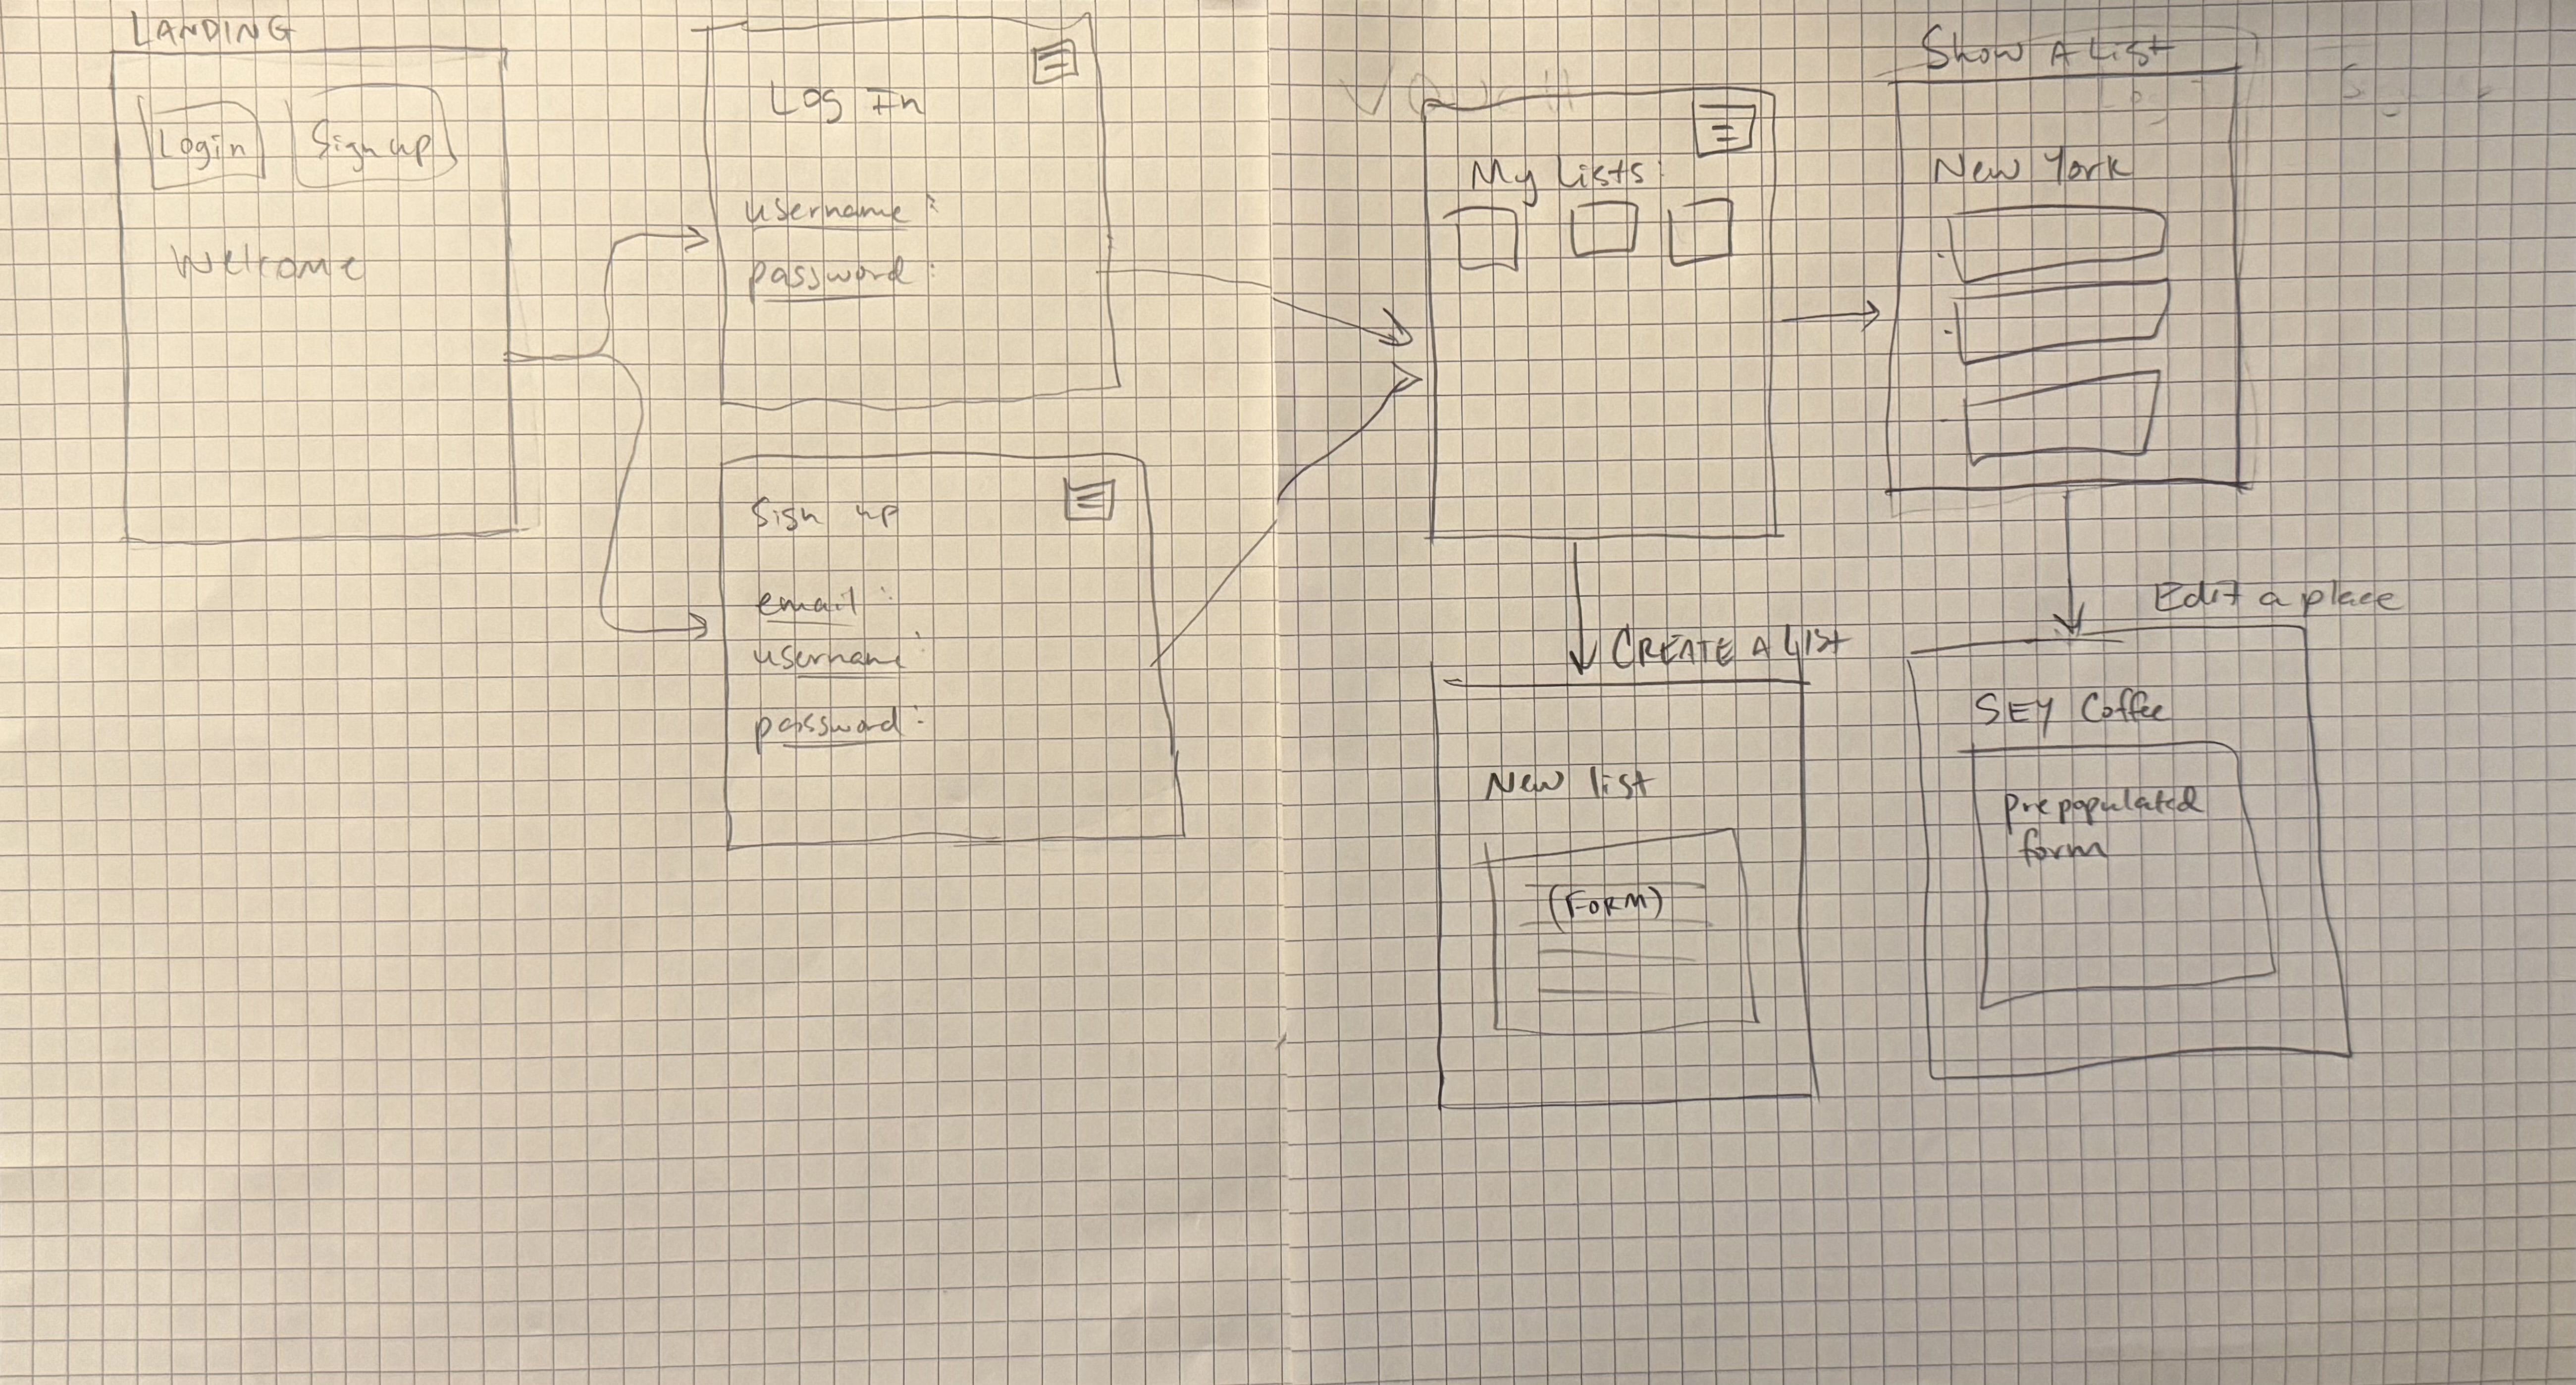 LANDING
Login
Sign up
Welcome
Log In
username:
password:
Sign up
email:
username:
password:
My Lists:
Show A List
New York
CREATE A LIST
New list
(FORM)
Edit a place
SEY Coffee
prepopulated
form